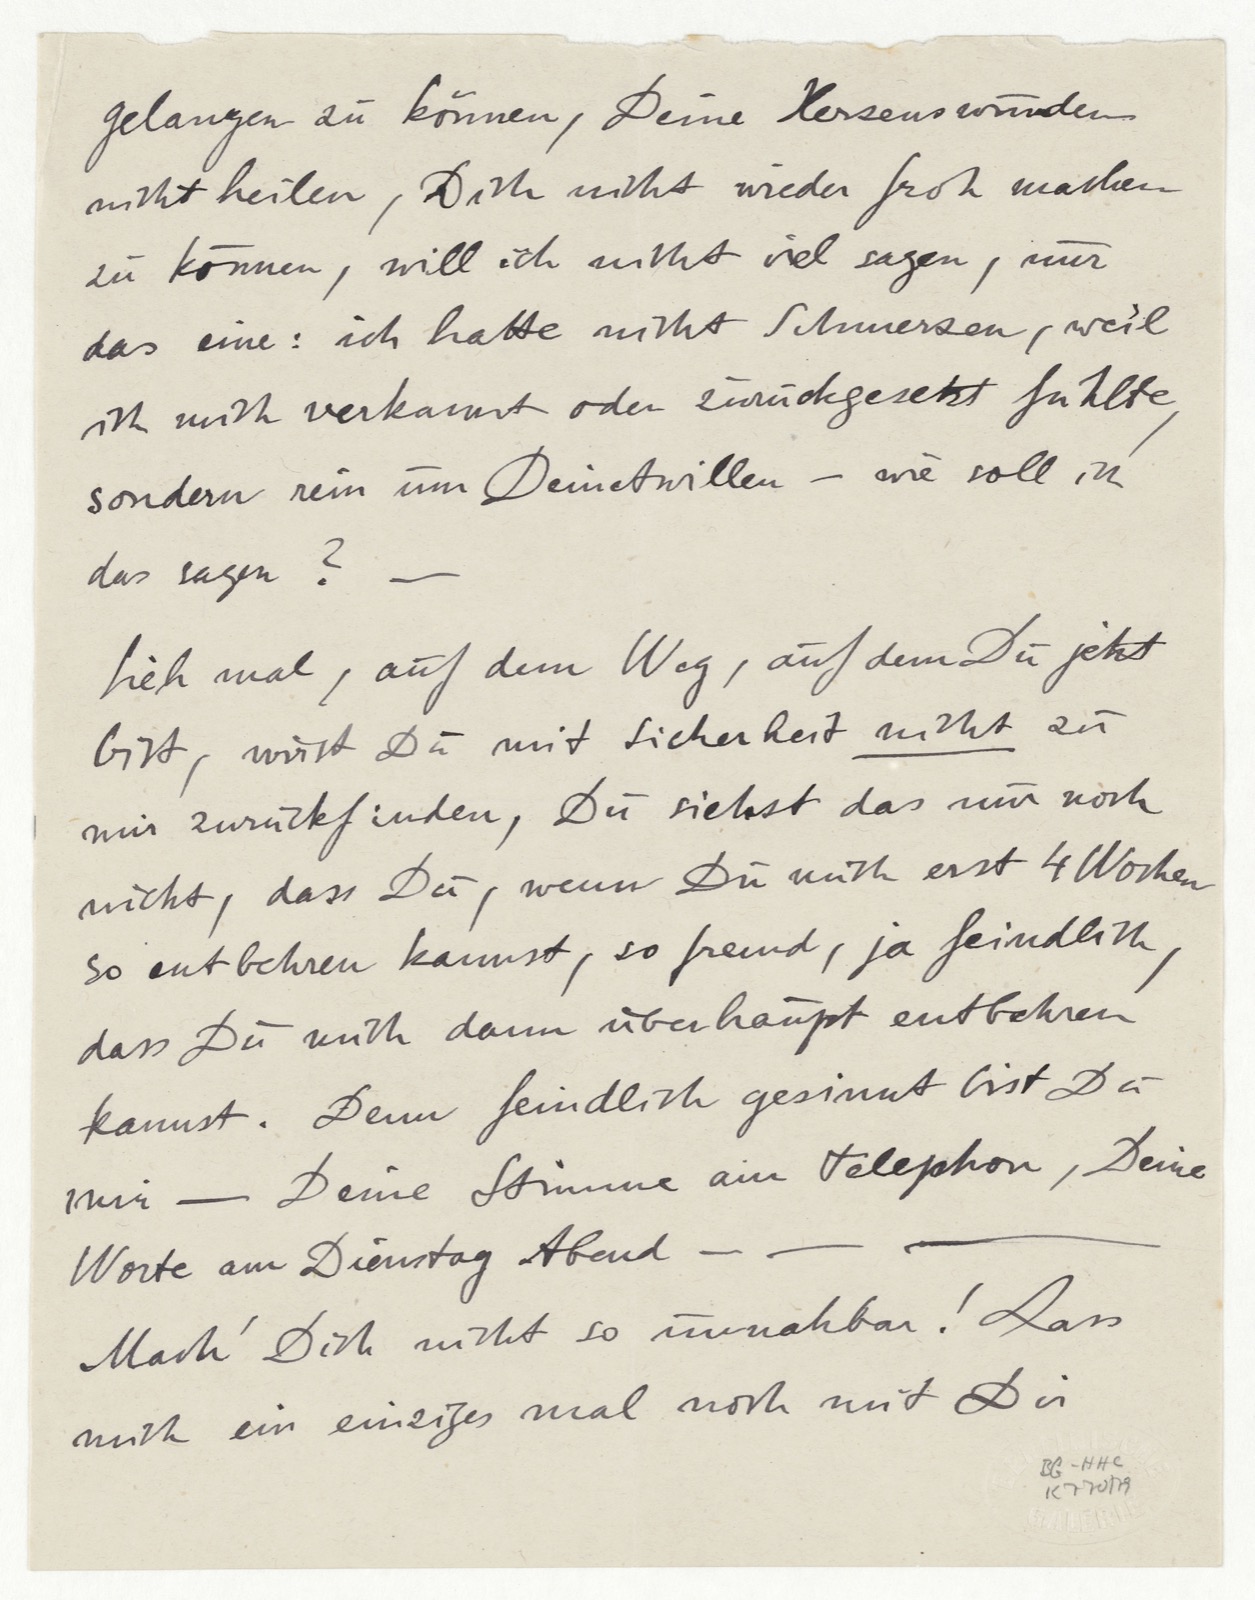 gelangen zu können, Deine Herzenswunden
nicht heilen, Dich nicht wieder froh machen
zu können, will ich nicht viel sagen, nur
das eine: ich hatte nicht Schmerzen, weil
ich mich verkannt oder zurückgesetzt fühlte,
sondern rein um Deinetwillen – wie soll ich
das sagen? —
Sieh mal, auf dem Weg, auf dem Du jetzt
bist, wirst Du mit Sicherheit nicht zu
mir zurückfinden, Du siehst das nur noch
nicht, dass Du, wenn Du mich erst 4 Wochen
so entbehren kannst, so fremd, ja feindlich,
dass Du mich dann überhaupt entbehren
kannst. Denn feindlich gesinnt bist Du
mir — Deine Stimme am Telephon, Deine
Worte am Dienstag Abend – — —
Mach' Dich nicht so unnahbar! Lass
mich ein einziges mal noch mit Dir
BG-HHC